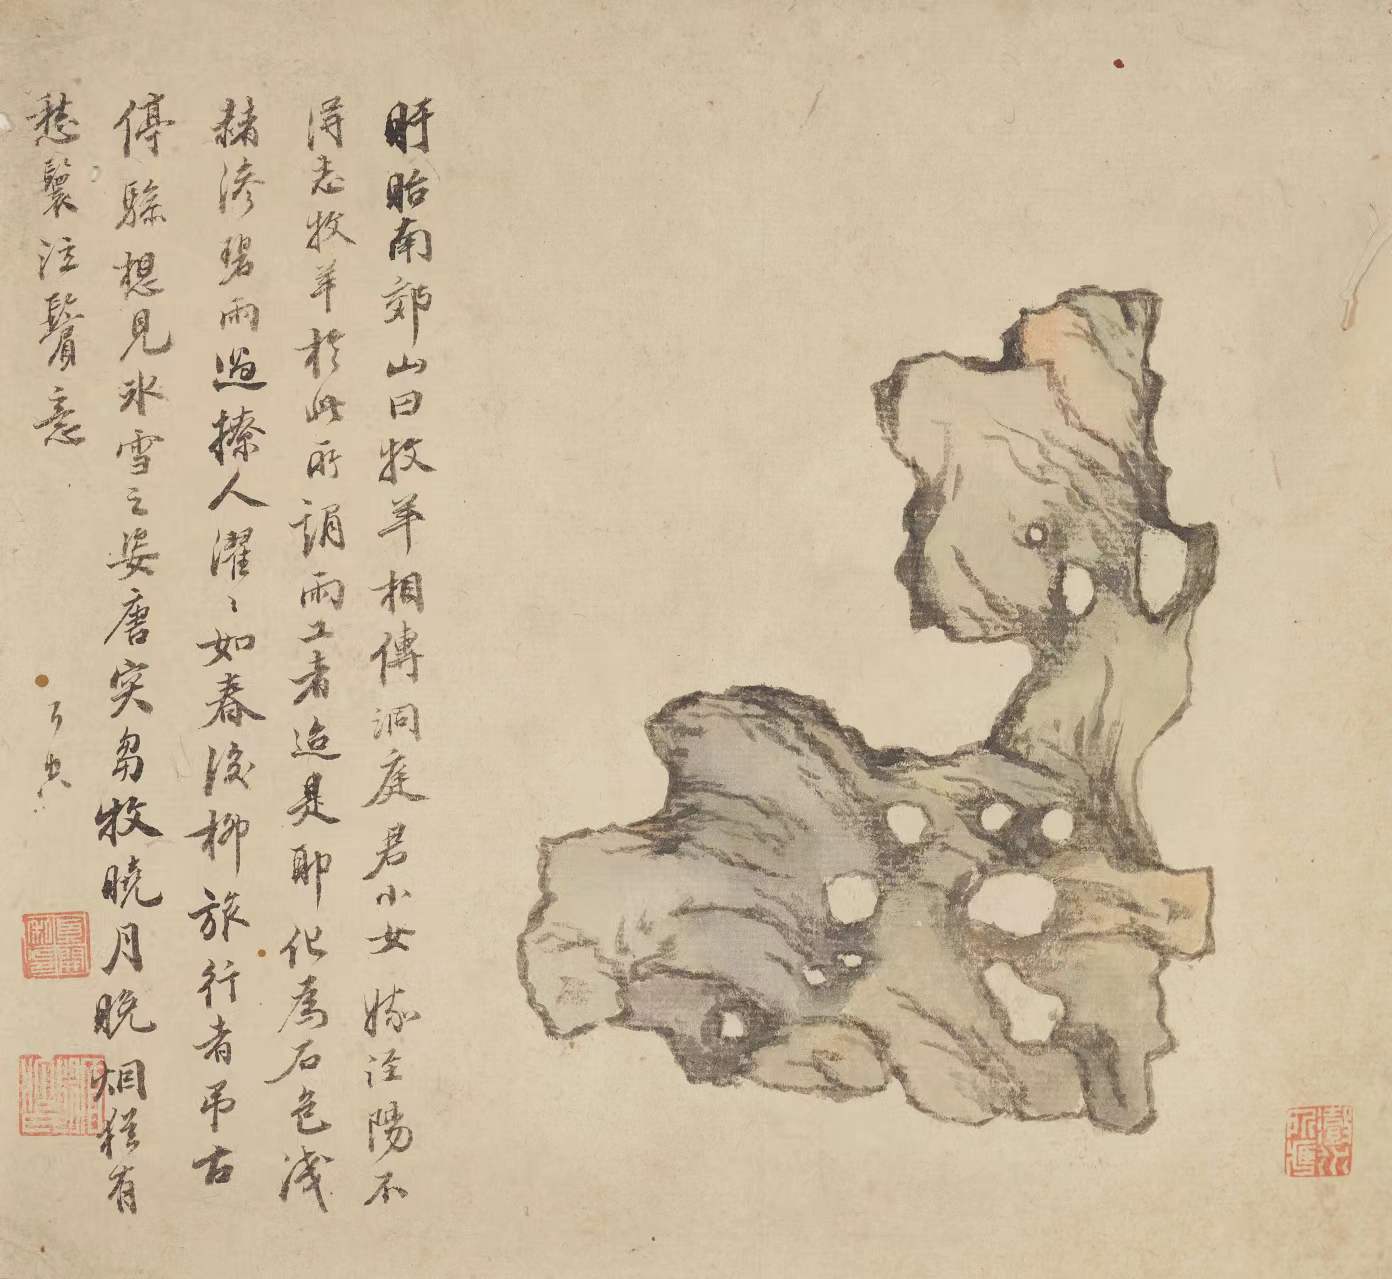 盱眙南郊山曰牧羊相傳洞庭君小女嫁泾陽不
得志牧羊於此所謂雨工者迨是耶化為石色淺
赭滲碧雨過撩人濯〻如春後柳旅行者弔古
停驂想見冰雪之姿唐突芻牧曉月晚烟猶有
愁鬟泣鬢意